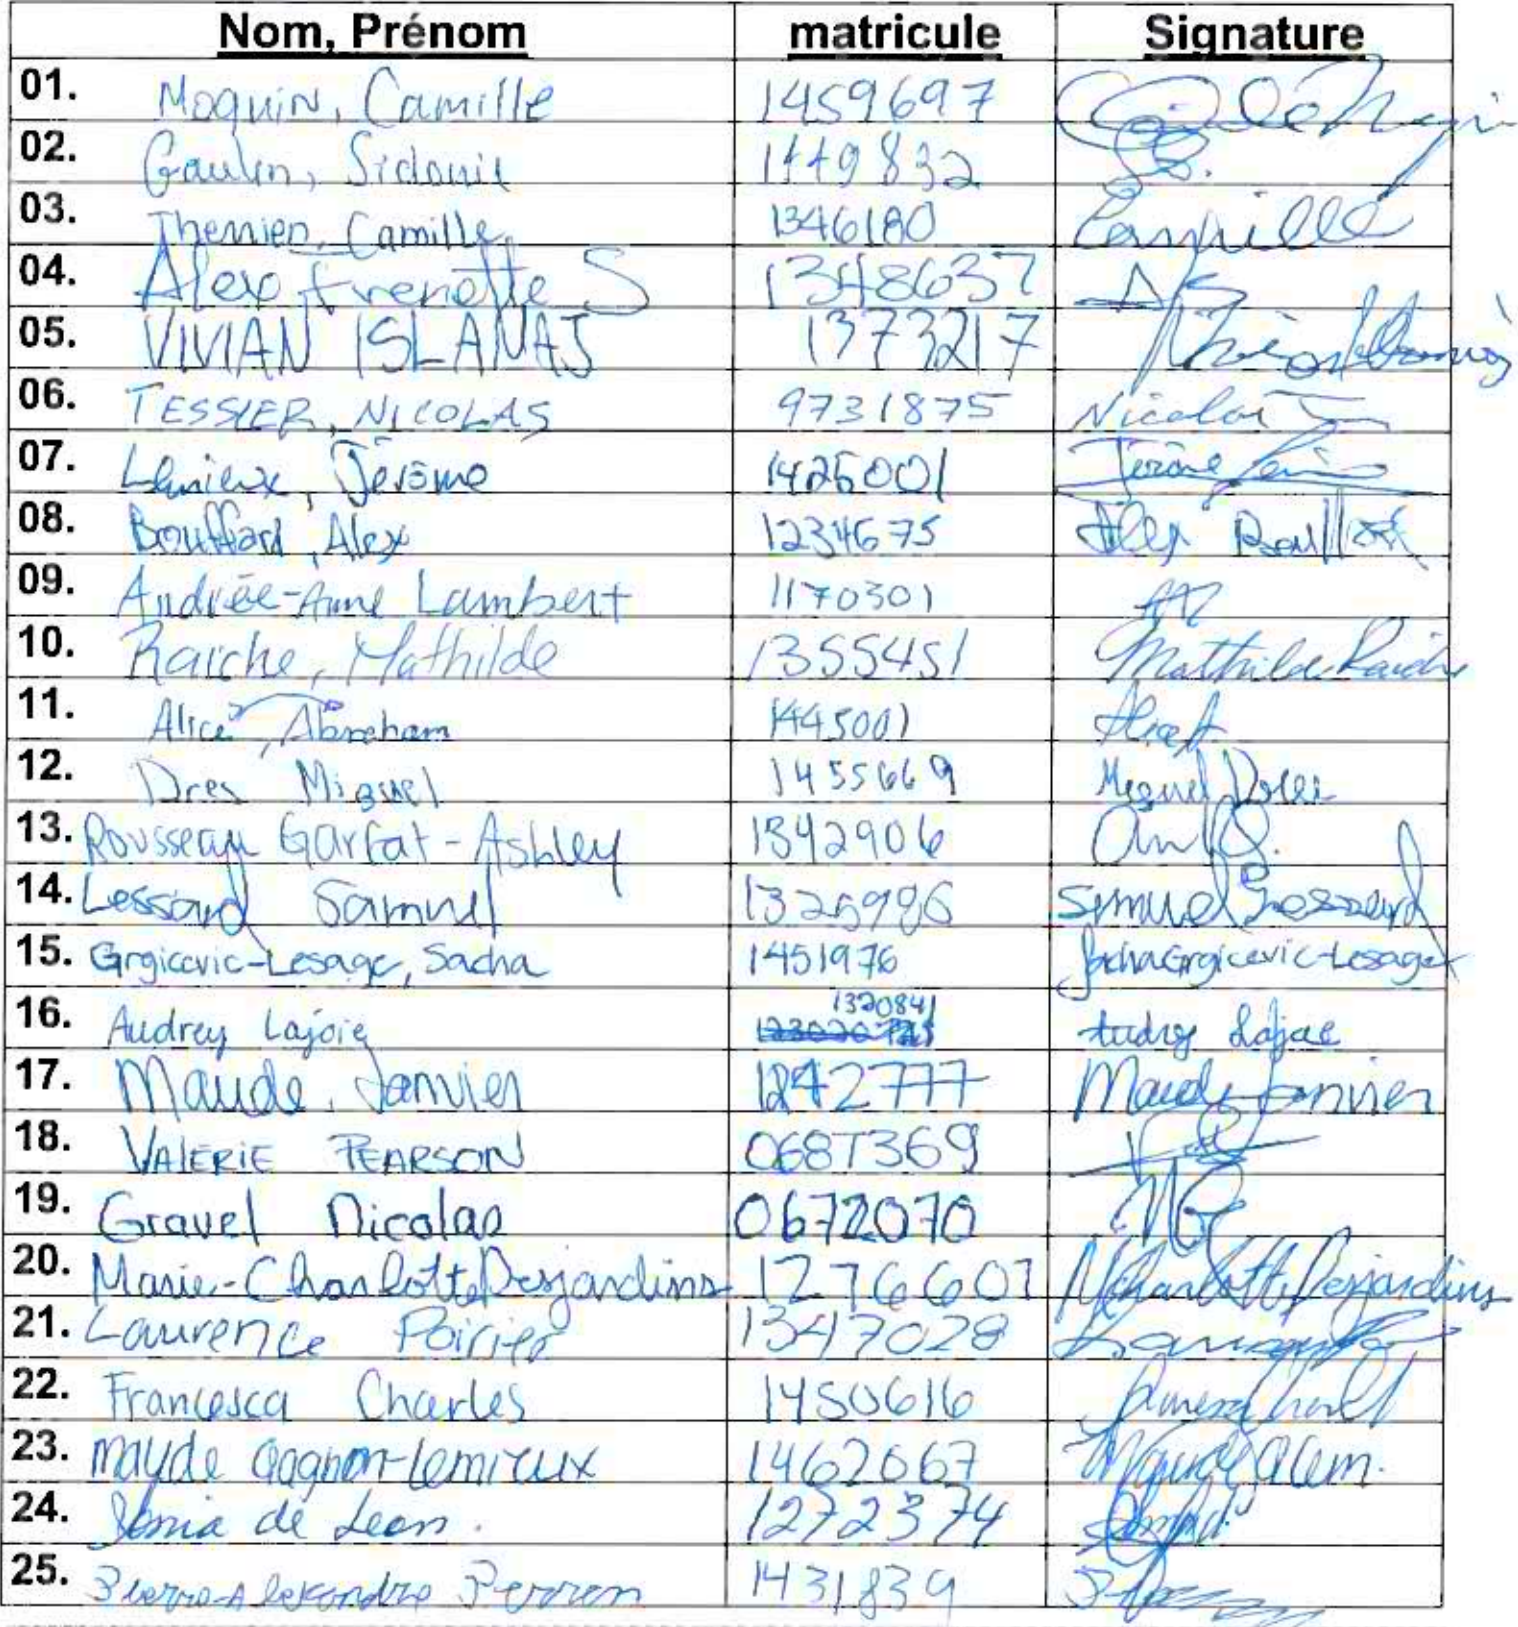 Nom, Prénom matricule Signature
01. Moquin, Camille 1459697
02. Gaulin, Sidonie 1449832
03. Therrien, Camille 1346180 Camille
04. Alex Frenette S 1348637 AFS
05. VIVIAN ISLANAJ 1373217
06. TESSIER, NICOLAS 9731875 Nicolas
07. Lemieux, Jérôme 1425001 Jérôme
08. Bouffard, Alex 1234675 Alex Bouffard
09. Andrée-Anne Lambert 1170301
10. Raiche, Mathilde 1355451 Mathilde Raiche
11. Alice, Abraham 1445001
12. Dres Miguel 1455669 Miguel Dres
13. Rousseau Garfat-Ashley 1342906
14. Lessard Samuel 1325986 Samuel Lessard
15. Grgicevic-Lesage, Sacha 1451976 Sacha Grgicevic-Lesage
16. Audrey Lajoie 1320841 Audrey Lajoie
17. Maude, Janvier 1242777 Maude Janvier
18. VALERIE PEARSON 0687369
19. Gravel Nicolas 0672070 NG
20. Marie-Charlotte Desjardins 1276607 MCharlotte Desjardins
21. Laurence Poirier 1347028
22. Francesca Charles 1450616
23. Mayde Gagnon-Lemieux 1462067
24. Sonia de Leon. 1272374
25. Pierre-Alexandre Perron 1431839